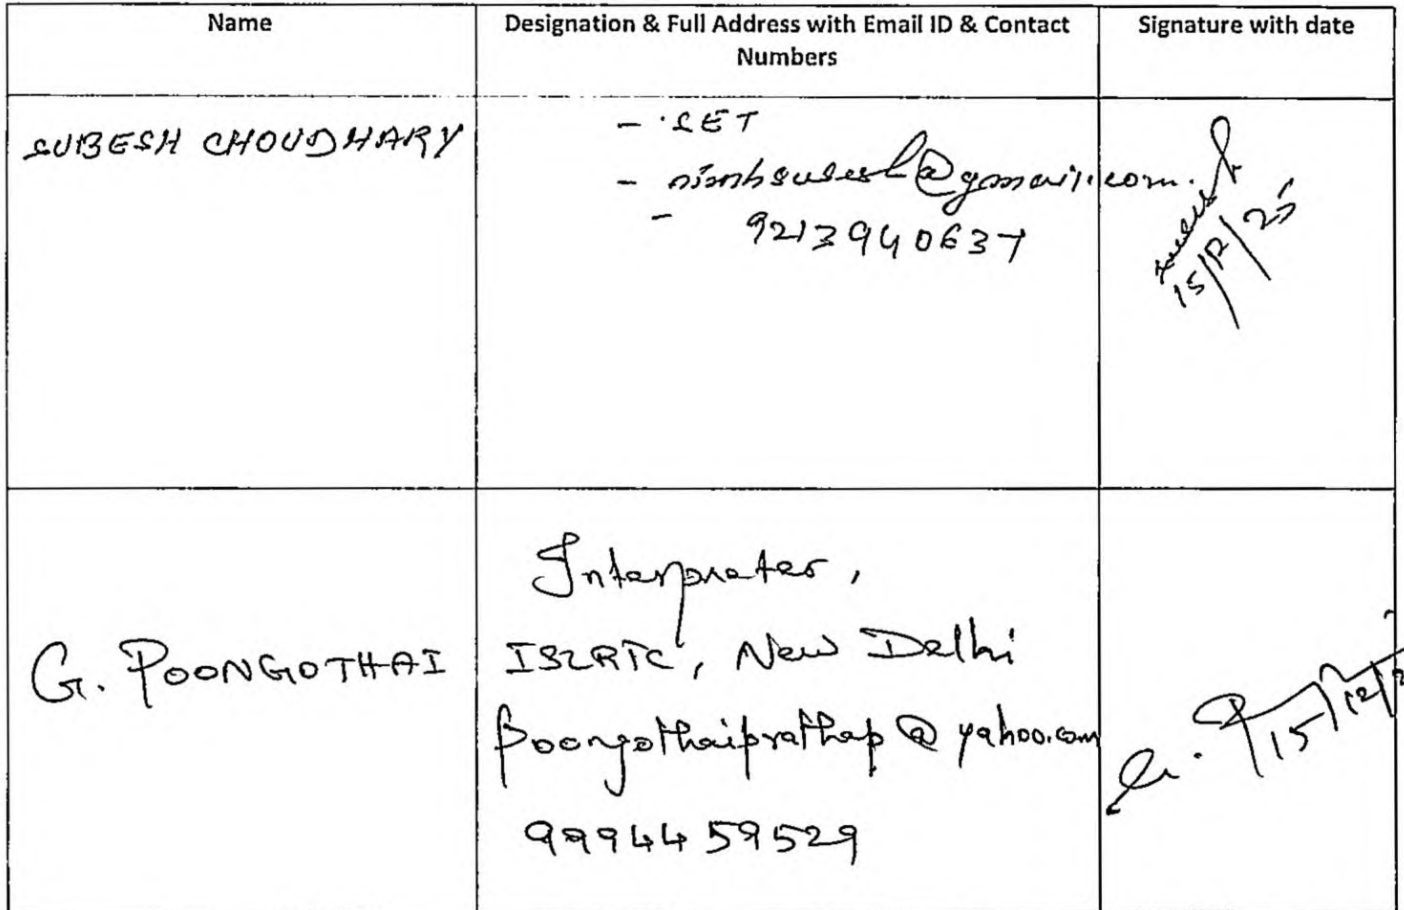 Name
Designation & Full Address with Email ID & Contact
Numbers
Signature with date
SUBESH CHOUDHARY
- SET
@gmail.com.
- 9213940637
15/12/25
G. POONGOTHAI
Interpreter,
ISLRTC, New Delhi
poongothaiprathap@yahoo.com
9994459529
G. P
15/12/2